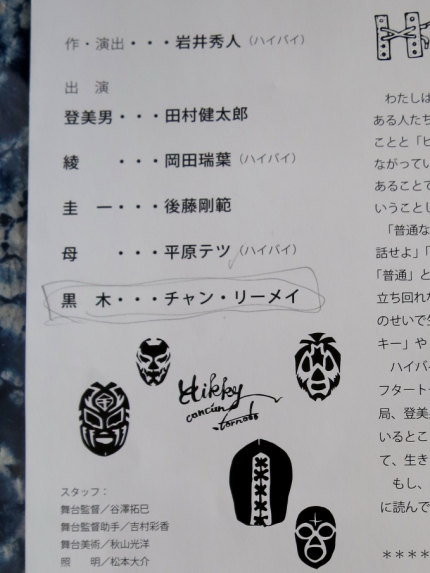 作・演出・・・岩井秀人（ハイバイ）
出　演
登美男・・・田村健太郎
綾　　・・・岡田瑞葉（ハイバイ）
圭　一・・・後藤剛範
母　　・・・平原テツ（ハイバイ）
黒　木・・・チャン・リーメイ
Hikky
cancun
tornado
スタッフ：
舞台監督／谷澤拓巳
舞台監督助手／吉村彩香
舞台美術／秋山光洋
照　　明／松本大介
H
わたしは
ある人たち
ことと「ヒ
ながってい
あることで
いうことし
「普通な
話せよ」「
「普通」と
立ち回れた
のせいで生
キー」や
ハイバイ
フタート
局、登美
いるとこ
て、生き
もし、
に読んで
＊＊＊＊